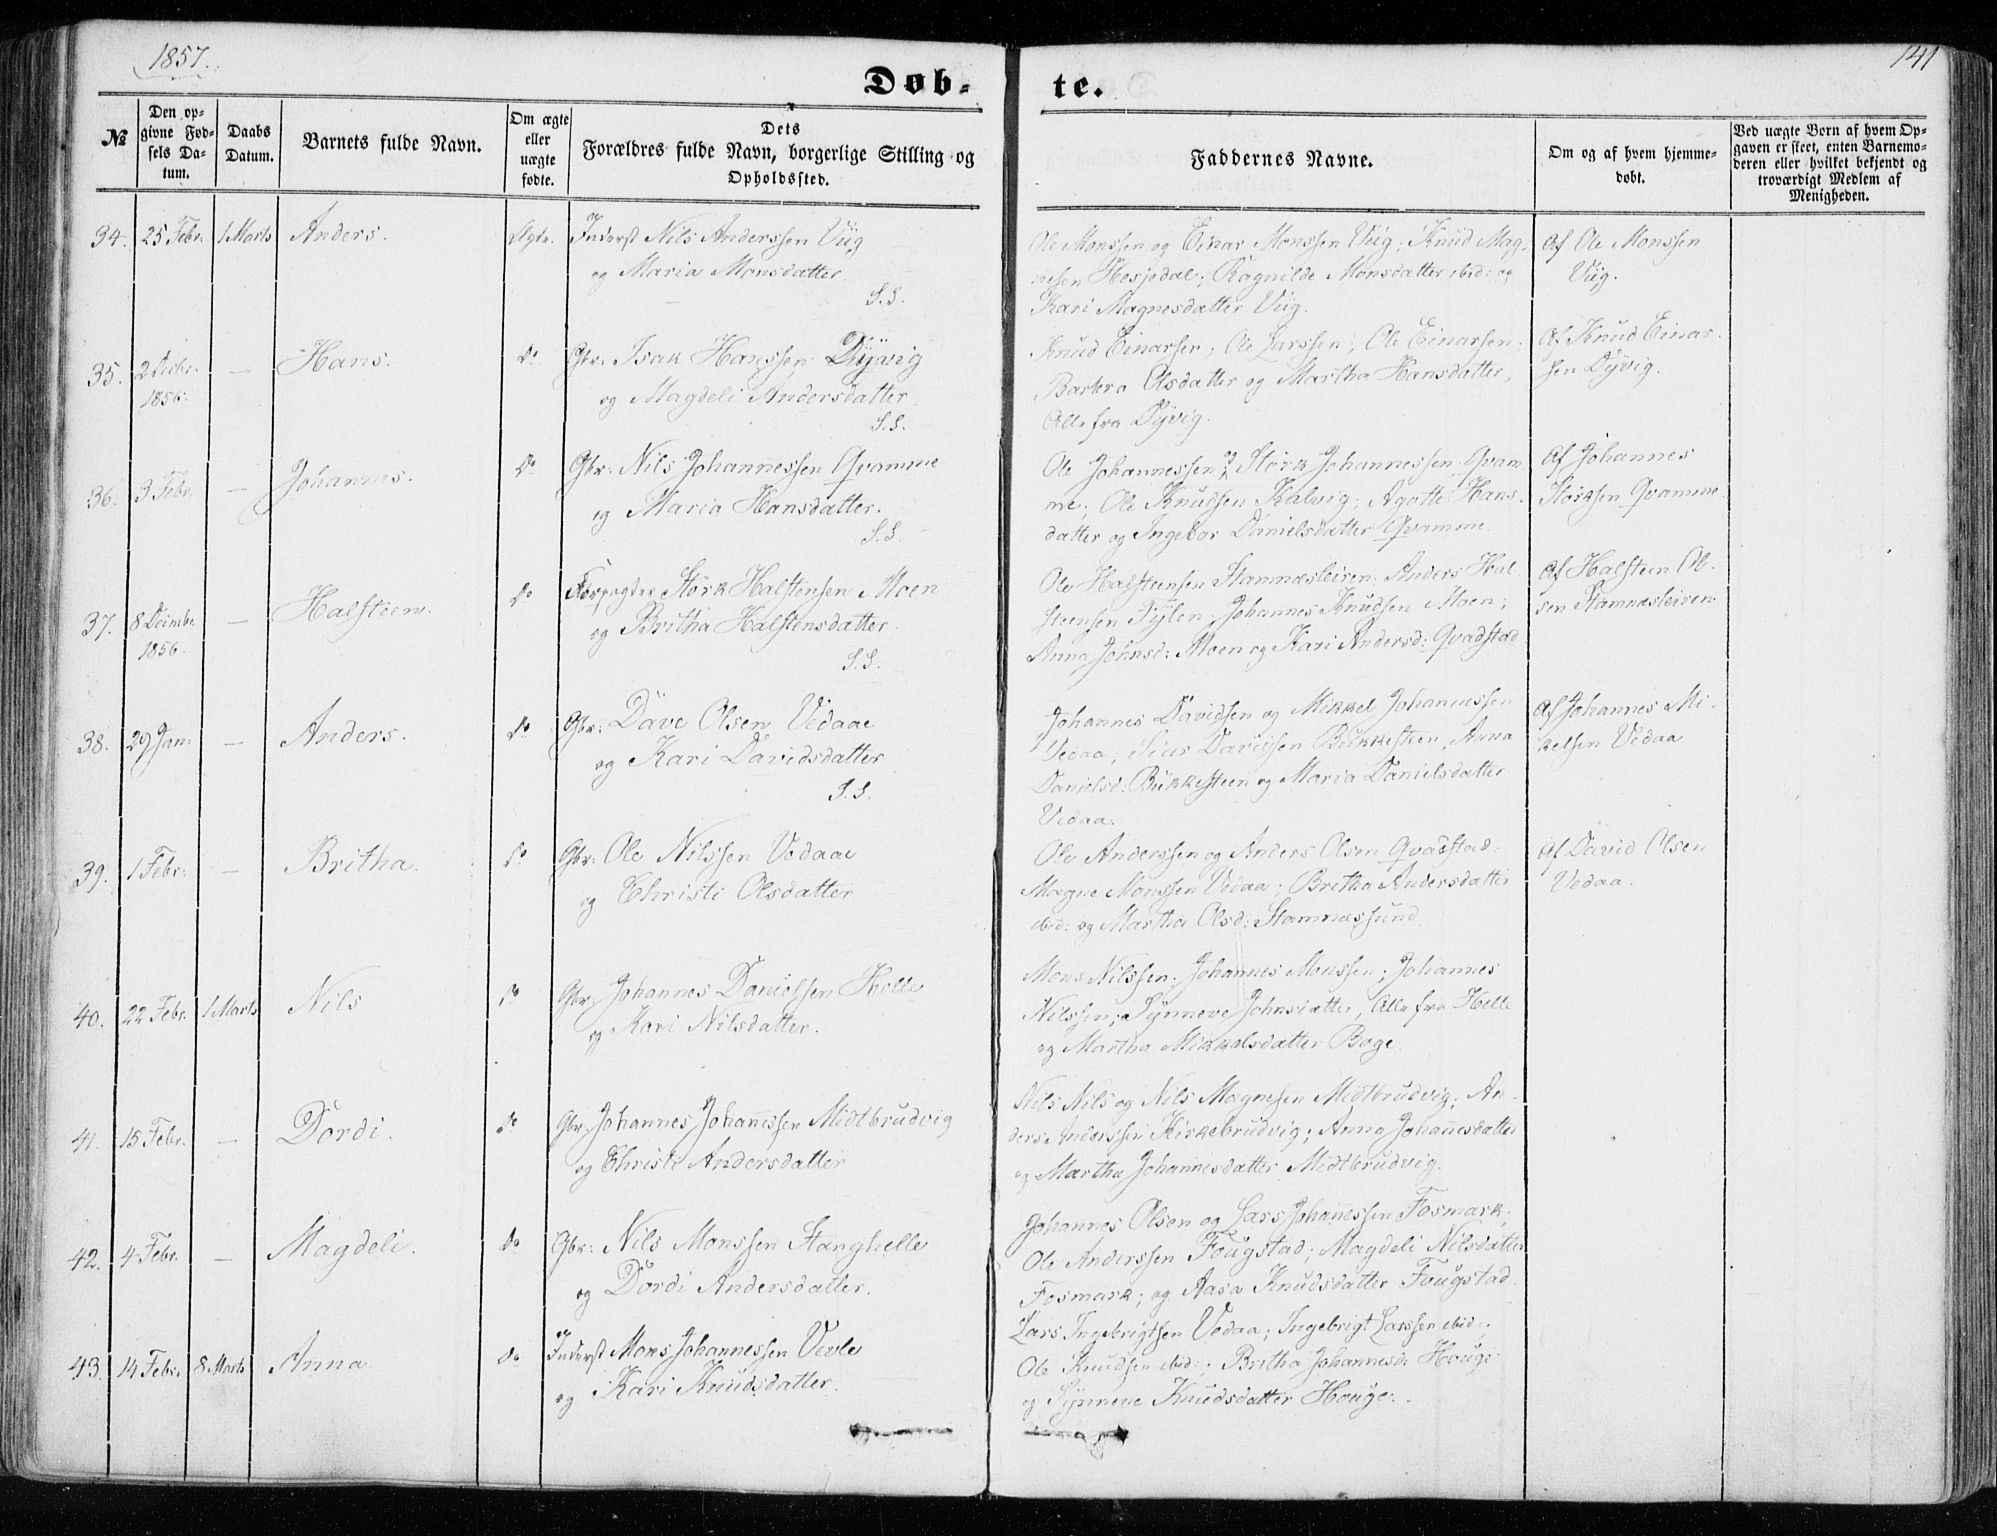 1857.
141
Døb-
te.
№
Den op-
givne Fød-
sels Da-
tum.
Daabs
Datum.
Barnets fulde Navn.
Om ægte
eller
uægte
fødte.
Dets
Forældres fulde Navn, borgerlige Stilling og
Opholdssted.
Faddernes Navne.
Om og af hvem hjemme-
døbt.
Ved uægte Børn af hvem Op-
gaven er skeet, enten Barnemo-
deren eller hvilket bekjendt og
troværdigt Medlem af
Menigheden.
34. 25 Febr. 1 Marts Anders. Ægte. Inderst Nils Anderssen Viig
og Maria Monsdatter
S.S.
Ole Monssen og Einar Monssen Viig; Knud Mag-
nesen Hesjedal; Ragnilde Monsdatter ibid: og
Kari Magnesdatter Viig.
Af Ole Monssen
Viig.
35. 2 1856. — Hans. Do Gbr: Isak Hanssen Dyvig
og Magdeli Andersdatter
S.S.
Knud Einarsen; Ole Larssen; Ole Einarsen;
Barbra Olsdatter og Martha Hansdatter,
Alle fra Dyvig.
Af Knud Einar-
sen Dyvig.
36. 3 Febr. — Johannes. Do Gbr: Nils Johannessen Qvamme
og Maria Hansdatter.
S.S.
Ole Johannessen og Størk Johannessen Qvam-
me; Ole Knudsen Kalvig; Agatte Hans-
datter og Ingebor Danielsdatter Qvamme.
Af Johannes
Størksen Qvamme.
37. 8 Decmbr. 1856. — Halsteen. Do Forpagter Størk Halstensen Moen
og Britha Halstensdatter
S.S.
Ole Halsteensen Stamnæsleiren; Anders Hal-
steensen Tyssen; Johannes Knudsen Moen;
Anna Johnsd: Moen og Kari Andersd: Qvadstad
Af Halsteen Ol-
sen Stamnæsleiren
38. 29 Jan: — Anders. Do Gbr: Dave Olsen Vedaae
og Kari Davidsdatter
S.S.
Johannes Davidsen og Mikkel Johannessen
Vedaa; Siur Davidsen Bukkesteen, Anna
Danielsd: Bukkesteen og Maria Danielsdatter
Vedaa.
Af Johannes Mi-
kelsen Vedaa
39. 1 Febr: — Britha. Do Gbr: Ole Nilssen Vedaae
og Christi Olsdatter
Ole Anderssen og Anders Olsen Qvadstad;
Magne Monssen Vedaa; Britha Andersdatter
ibid: og Martha Olsd: Stamnæssund.
Af David Olsen
Vedaa.
40. 22 Febr. 1 Marts Nils Do Gbr: Johannes Danielsen Helle
og Kari Nilsdatter.
Mons Nilssen; Johannes Monssen; Johannes
Nilssen; Synneve Johnsdatter, Alle fra Helle
og Martha Mikkelsdatter Boge
41. 15 Febr. — Dordi. Do Gbr: Johannes Johannssen Midtbrudvig
og Christi Andersdatter
Nils Nils og Nils Magnesen Midtbrudvig; An-
ders Anderssen Kirkebrudvig; Anna Johannesdatter
og Martha Johannisdatter Midtbrudvig.
42. 4 Febr. — Magdeli. Do Gbr: Nils Monssen Stanghelle
og Dordi Andersdatter.
Johannes Olsen og Lars Johannessen Fosmark;
Ole Anderssen Fougstad; Magdeli Nilsdatter
Fosmark; og Aasa Knudsdatter Fougstad.
43. 14 Febr. 8 Marts Anna Do Inderst Mons Johannessen Vevle
og Kari Knudsdatter.
Lars Ingebrigtsen Vedaa; Ingebrigt Larssen ibid:;
Ole Knudsen ibid:; Britha Johannesd: Houge
og Synneve Knudsdatter Houge:.